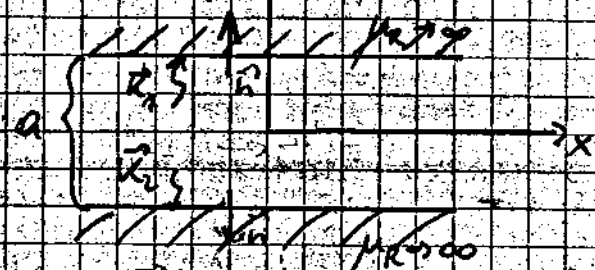 μ_R → ∞
K⃗₁ n⃗
a
x
K⃗₂
n⃗
μ_R → ∞